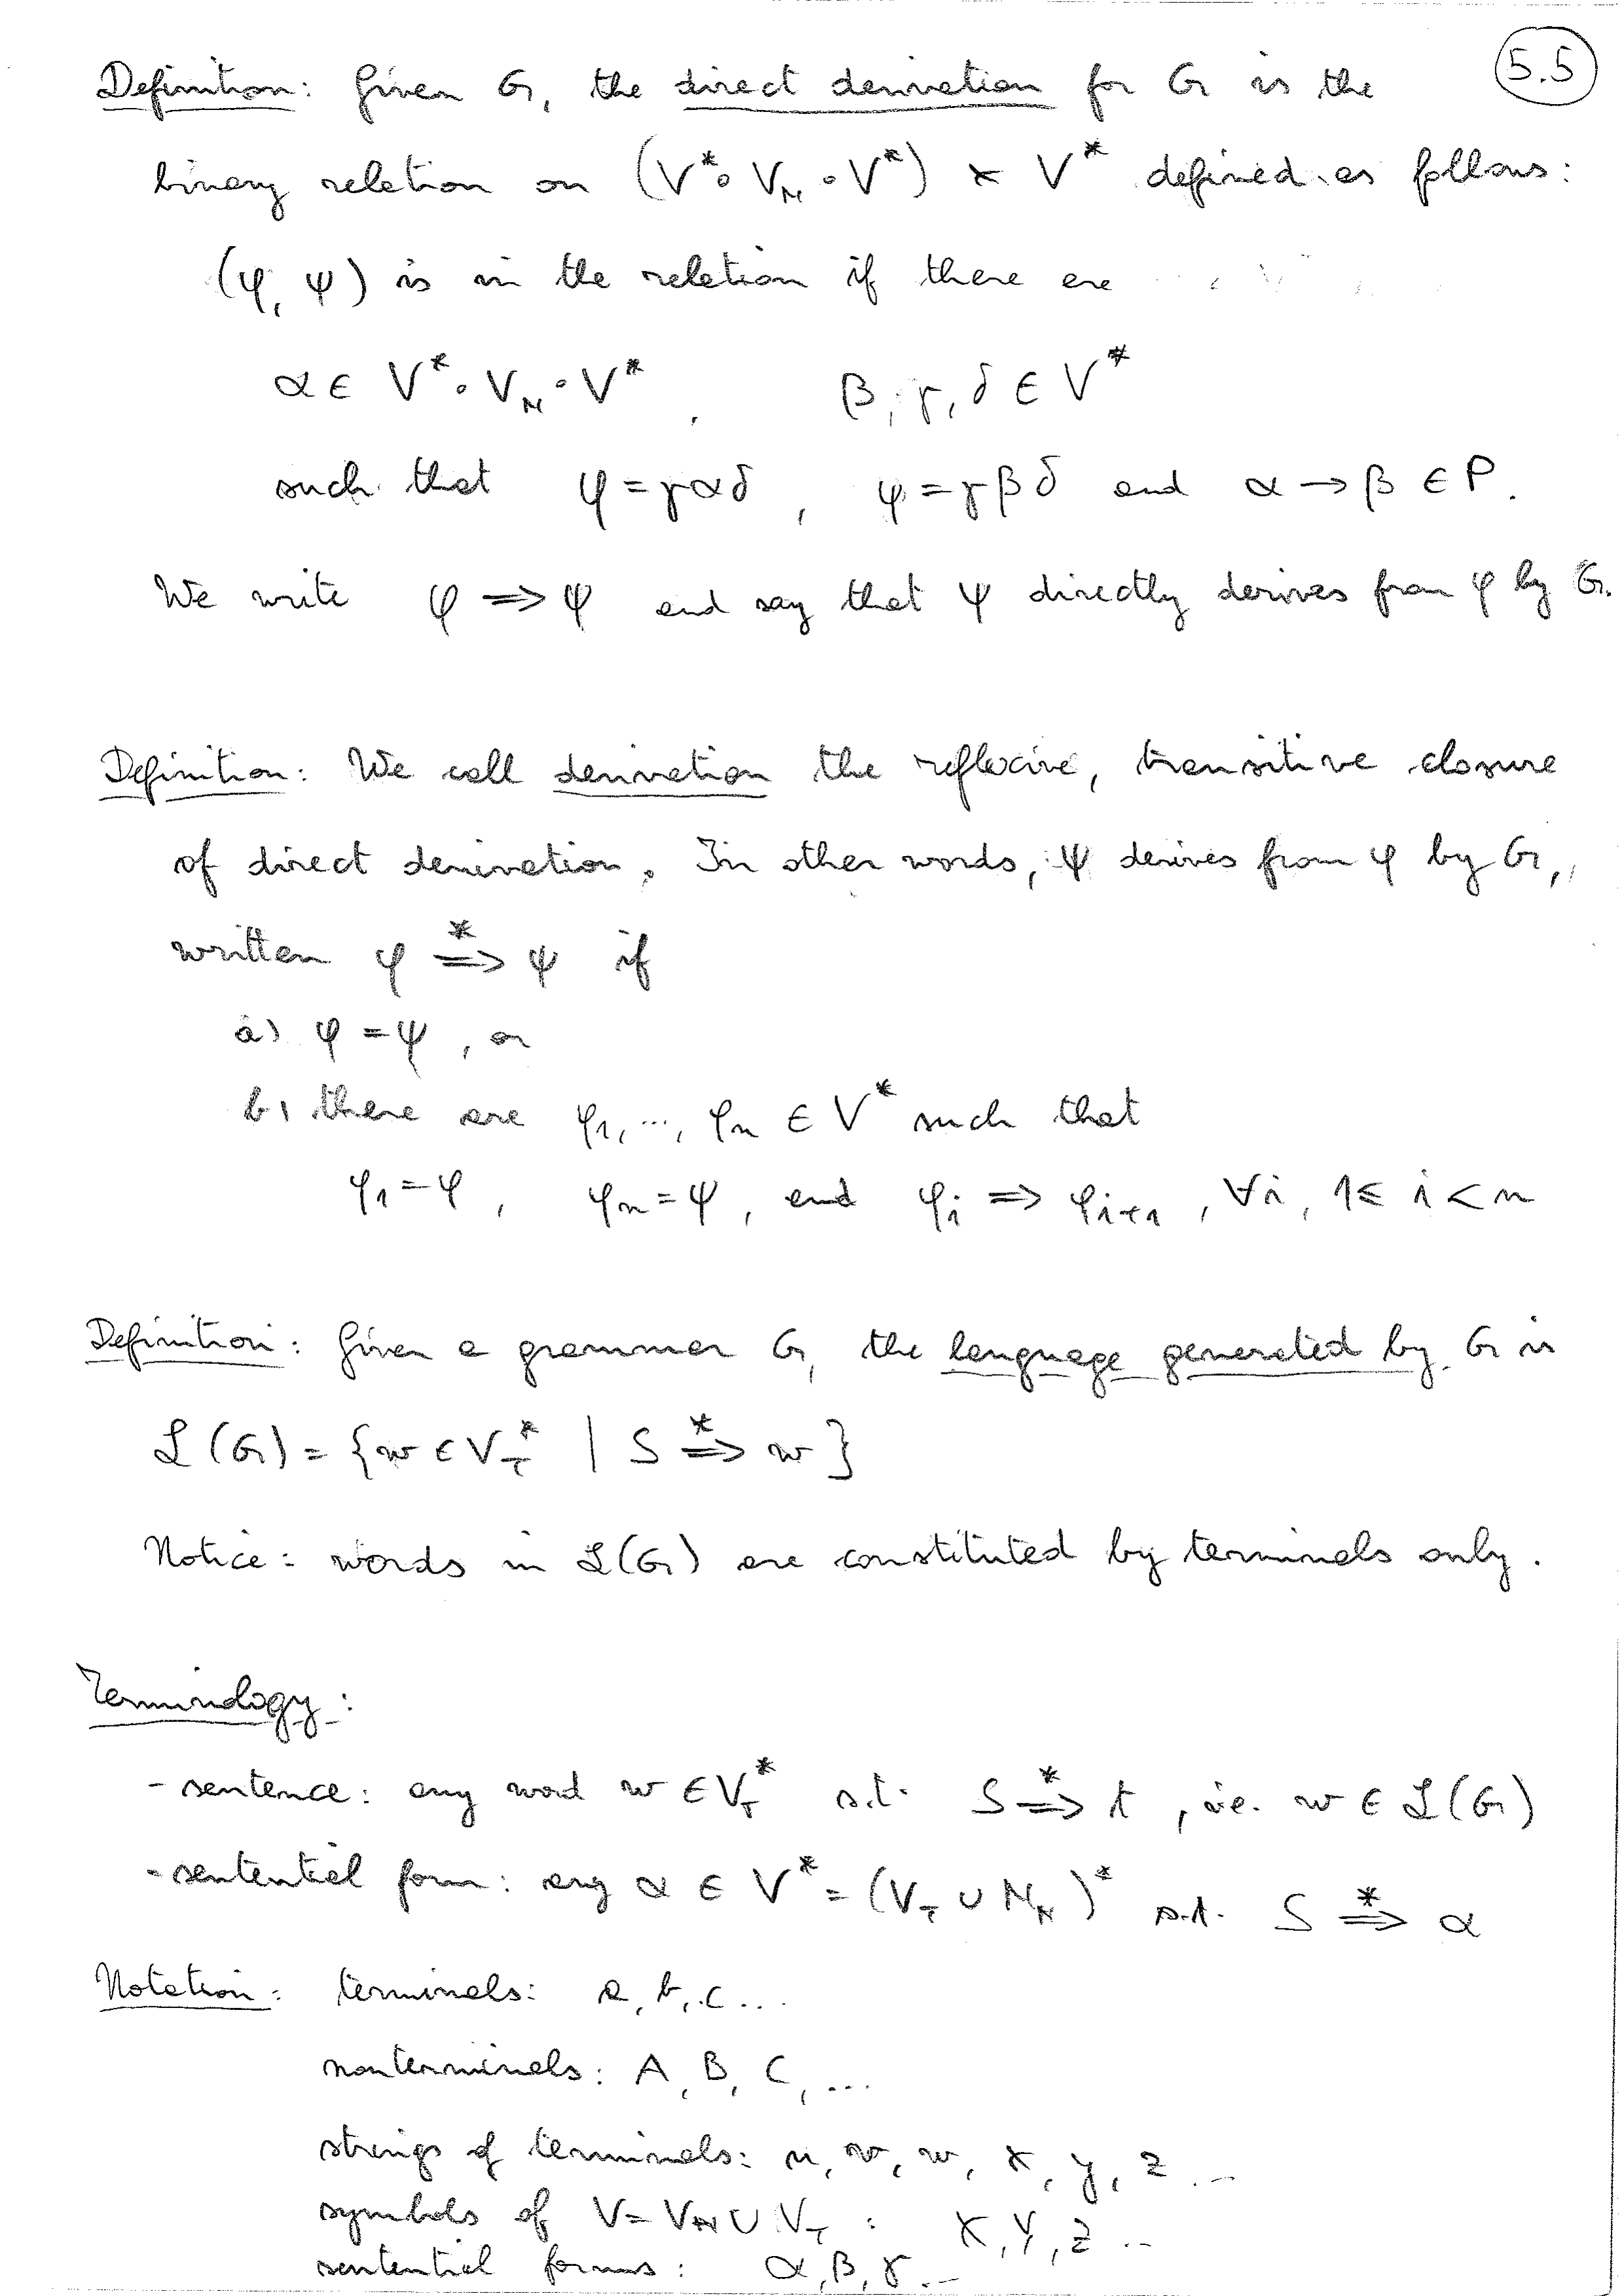 5.5
Definition: Given G, the direct derivation for G is the
binary relation on (V* ∘ V_N ∘ V*) × V* defined as follows:
(φ, ψ) is in the relation if there are
α ∈ V* ∘ V_N ∘ V* , β, γ, δ ∈ V*
such that φ = γαδ , ψ = γβδ and α → β ∈ P.
We write φ ⇒ ψ and say that ψ directly derives from φ by G.
Definition: We call derivation the reflexive, transitive closure
of direct derivation. In other words, ψ derives from φ by G,
written φ ⇒* ψ if
a) φ = ψ , or
b) there are φ₁, ..., φₙ ∈ V* such that
φ₁ = φ , φₙ = ψ , and φᵢ ⇒ φᵢ₊₁ , ∀i, 1 ≤ i < n
Definition: Given a grammar G, the language generated by G is
L(G) = {w ∈ V_T* | S ⇒* w}
Notice: words in L(G) are constituted by terminals only.
Terminology:
- sentence: any word w ∈ V_T* s.t. S ⇒* t , i.e. w ∈ L(G)
- sentential form: any α ∈ V* = (V_T ∪ N_N)* s.t. S ⇒* α
Notation: terminals: a, b, c ...
nonterminals: A, B, C, ...
strings of terminals: u, v, w, x, y, z ...
symbols of V = V_N ∪ V_T : X, Y, Z ...
sentential forms: α, β, γ ...